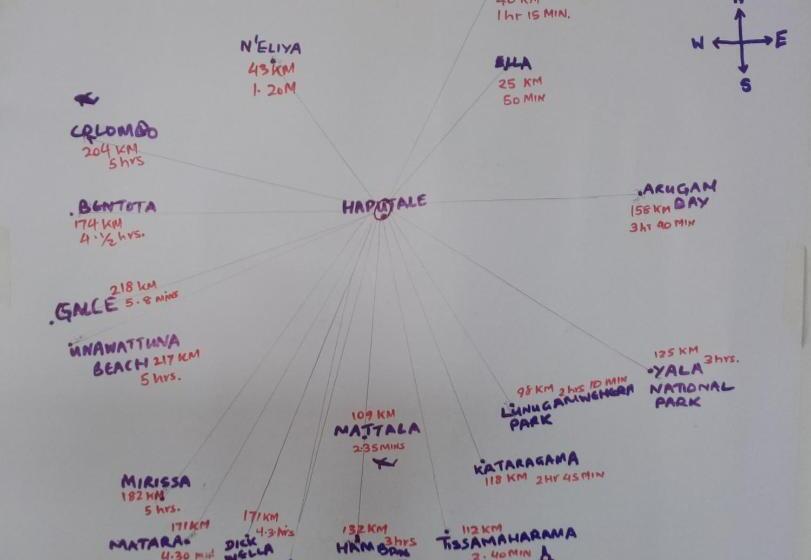 1 hr 15 MIN.
N
W E
S
N'ELIYA
43 KM
1.20M
ELLA
25 KM
50 MIN
COLOMBO
204 KM
5 hrs
BENTOTA
174 KM
4.½ hrs.
HAPUTALE
ARUGAM
BAY
158 KM
3 hr 40 MIN
218 KM
GALLE 5.8 mins
UNAWATTUNA
BEACH 217 KM
5 hrs.
125 KM
3 hrs.
YALA
NATIONAL
PARK
98 KM 2 hrs 10 MIN
LUNUGAMWEHERA
PARK
109 KM
MATTALA
2.35 MINS
KATARAGAMA
118 KM 2 Hr 45 MIN
MIRISSA
182 KM
5 hrs.
171 KM
MATARA
4.30
171 KM
4.3 hrs
DICK
WELLA
132 KM
3 hrs
112 KM
TISSAMAHARAMA
2.40 MIN